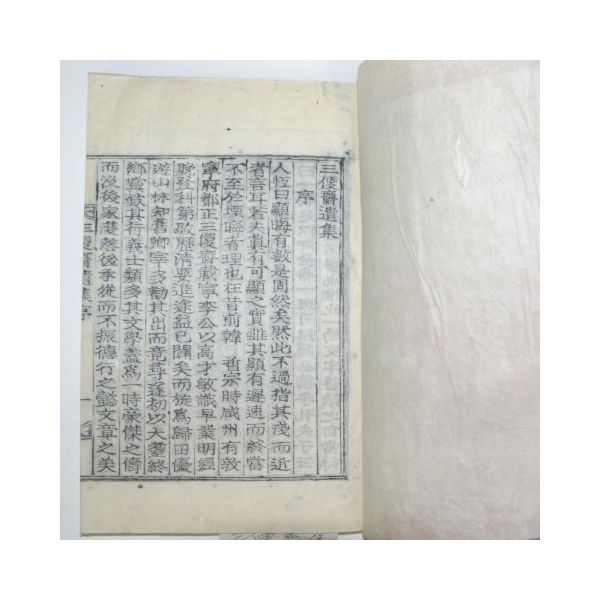 三優齋遺集
序
人恒曰顯晦有數是固然矣然此不過指其淺而近
者言耳若夫眞有可顯之實雖其顯有遲速而終當
不至於堙晦者理也在昔前韓 哲宗時咸州有敦
寧府都正三優齋載寧李公以高才敏識早業明經
晩登科第歇歷清要進途益已闢矣而旋爲歸田優
遊山林知舊鄉宰多勸其出而竟辱遂初以大耋終
鄉黨欽其行義士類多其文學盖爲一時豪傑之儔
而没後家聲零落後承從而不振德行之懿文章之美
三優齋遺集序
一